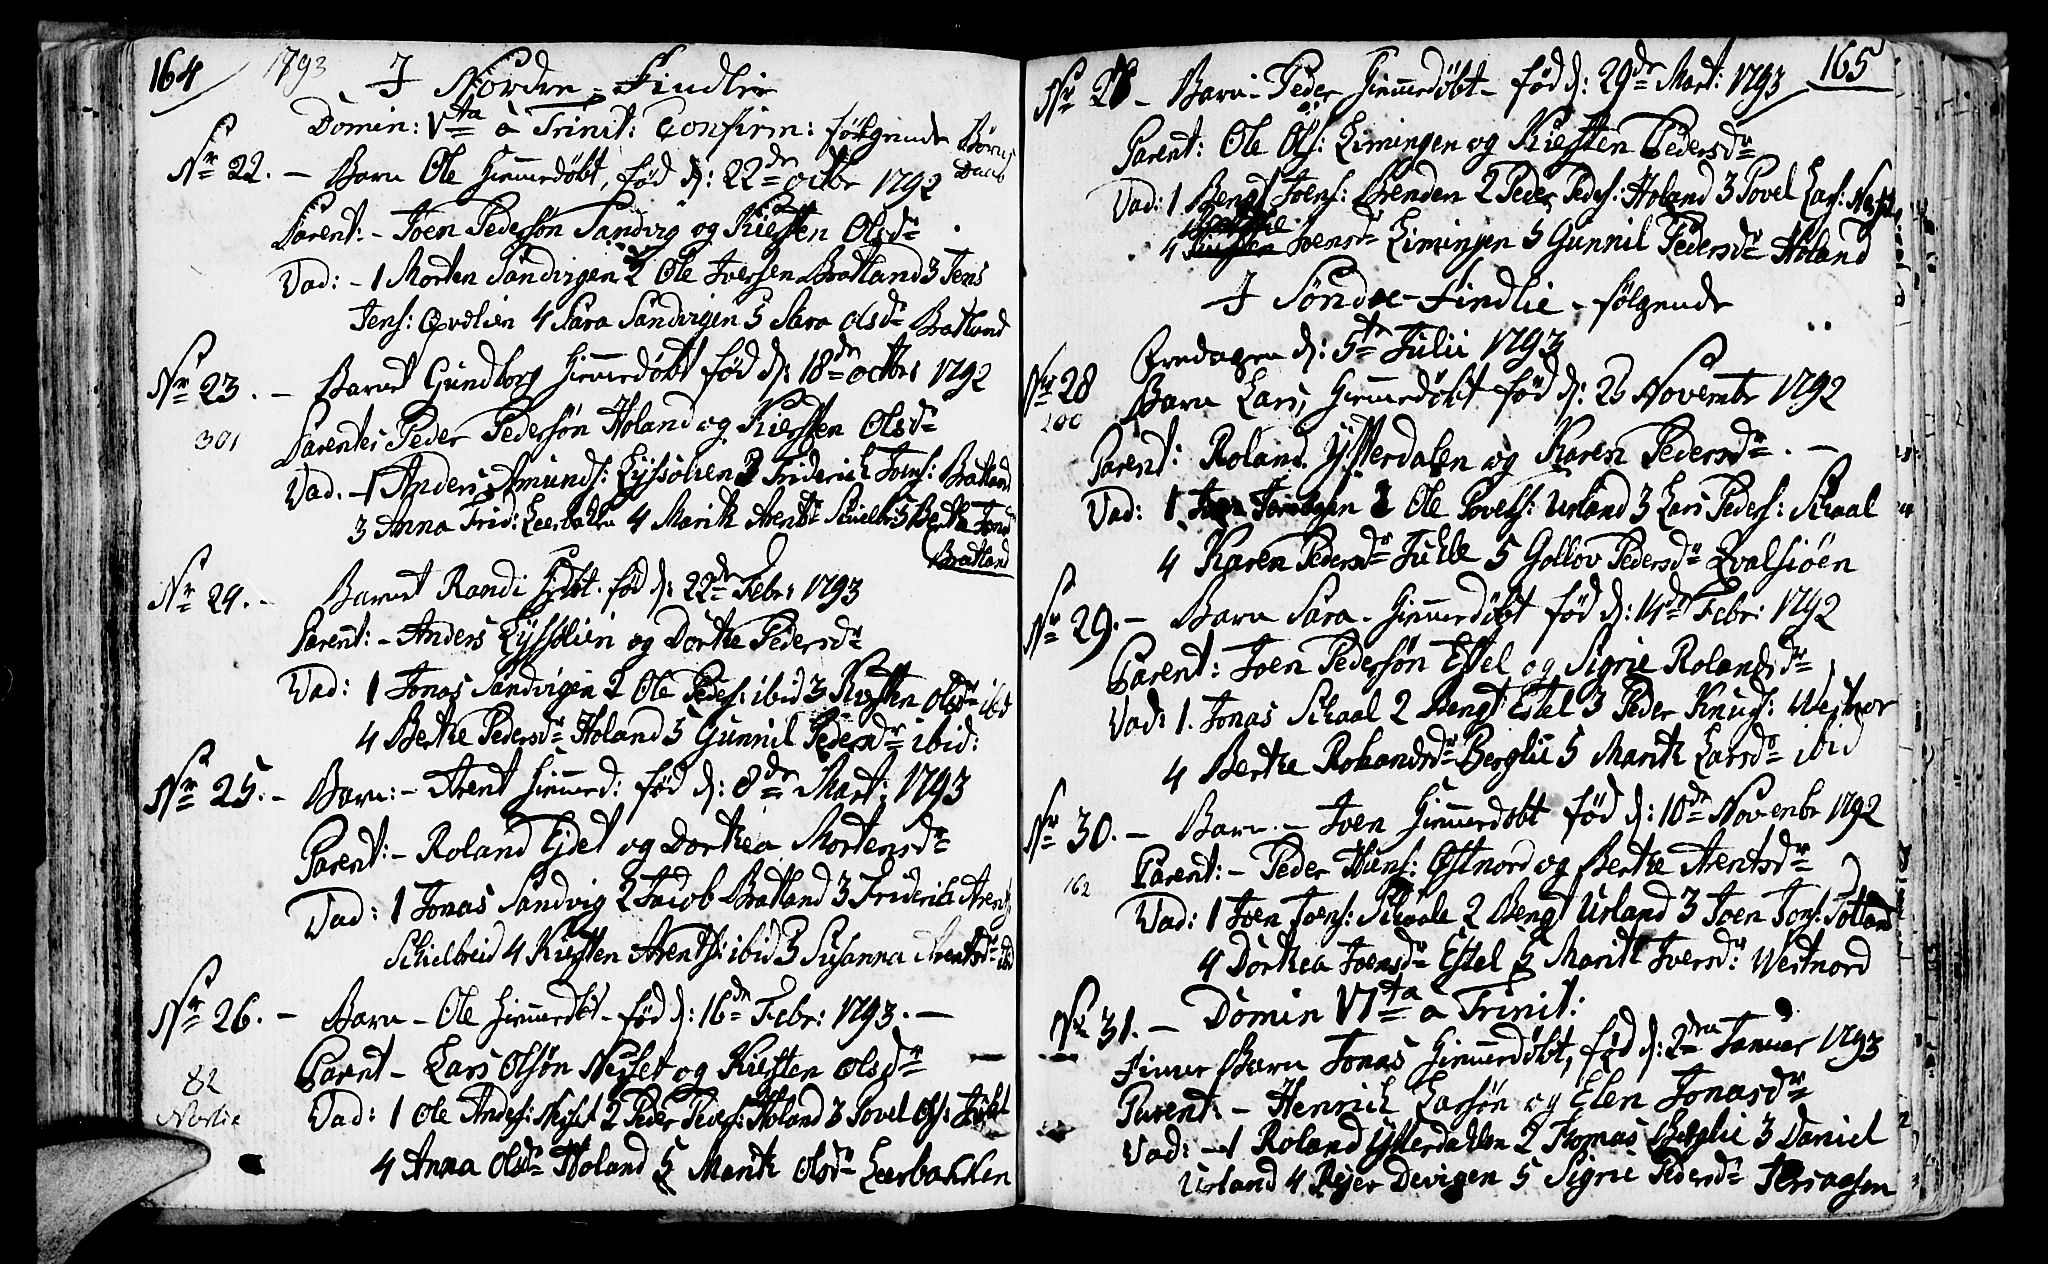 164
1793
I Nordre-Findlie
Domin: Vta à Trinit: Confirm: følgende Børns
Daab
Nr 22. — Barn Ole Hiemmedøbt, fød d: 22de octbr 1792
Parent: - Joen Pedersøn Sandvig og Kiesten Olsdr
Vad: - 1 Morten Sandvigen 2 Ole Iversen Bratland 3 Jens
Jens: Qvelien 4 Sara Sandvigen 5 Sara Olsdr Bratland
Nr 23. — Barnet Gundborg Hiemmedøbt fød d: 18de octbr: 1792
301
Parentes Peder Pedersøn Holand og Kiersten Olsdr
Vad. - 1 Anders Amunds: Lyssolien 2 Friderich Joens: Bratland
3 Anna Frid: Leerbakken 4 Marith Arentsdr Schielbred 5 Berthe Jonsdr
Bratland
Nr 24. - Barnet Randi Hdbt. fød d: 22de Febr: 1793
Parent: - Anders Lyssolien og Dorthe Pedersdr
Vad: 1 Jonas Sandvigen 2 Ole Peders: ibid 3 Kiesten Olsdr ibid
4 Berthe Pedersdr Holand 5 Gunnil Pedersdr ibid:
Nr 25. - Barn: - Arent Hiemmed: fød d: 8de Mart: 1793
Parent: - Roland Ejdet og Dorthea Mortensdr
Vad: 1 Jonas Sandvig 2 Jacob Bratland 3 Friderich Arents:
Schielbreid 4 Kiesten Arents: ibid 5 Susanna Arentsdr ibid
Nr 26. — Barn - Ole Hiemmedbt - fød d: 16de Febr: 1793. —
Parent - Lars Olsøn Neset og Kiesten Olsdr
82
Vad: 1 Ole Anders: Neset 2 Peder Peders: Holand 3 Povel Ols:
Nordlie
4 Anna Olsdr Holand 5 Marith Olsdr Leerbakken
165
Nr 27 - Barn - Peder Hiemmedøbt - fød d: 29de Mart: 1793
Parent: Ole Ols: Limingen og Kiesten Pedersdr
Vad: 1 Bengt Joens: Brenden 2 Peder Peders: Holand 3 Povel Lars:
4 Joensdr Limingen 5 Gunnil Pedersdr Holand
I Søndre-Findlie - følgende
Fredagen d: 5te Julii 1793
Nr 28 Barn Lars, Hiemmedøbt fød d: 25 Novembr 1792
100
Parent: Roland Ytterdalen og Karen Pedersdr. —
Vad: 1 2 Ole Povels: Urland 3 Lars Peders: Schaal
4 Karen Pedersdr Juhle 5 Gollov Pedersdr Qvalsiøen
Nr 29. — Barn Sara - Hiemmedøbt fød d: 14de Febr: 1792
Parent: Joen Pedersøn Estel og Sigrie Rolandsdr
Vad: 1. Jonas Schaal 2 Bengt Estel 3 Peder Knuds: Westnor
4 Berthe Rolandsdr Berglie 5 Marith Larsdr ibid
Nr 30. — Barn. - Joen Hiemmedøbt fød d: 10de Novenbr 1792
Parent: - Peder Hans: Ostnord og Berthe Arentsdr
162
Vad: 1 Joen Joens: Schaale 2 Bengt Urland 3 Joen Jons: Totland
4 Dorthea Joensdr Estel 5 Marith Iversdr: Westnord
Domin VIta a Trinit:
Nr 31. — Finner Barn Jonas Hiemmedøbt, fød d: 2den Januar 1793
Parent: - Henrich Larsøn og Elen Jonasdr
Vad: - 1 Roland Ytterdahlen 2 Thomas Berglie 3 Daniel
Urland 4 Rejer Devigen 5 Sigrie Pedersdr